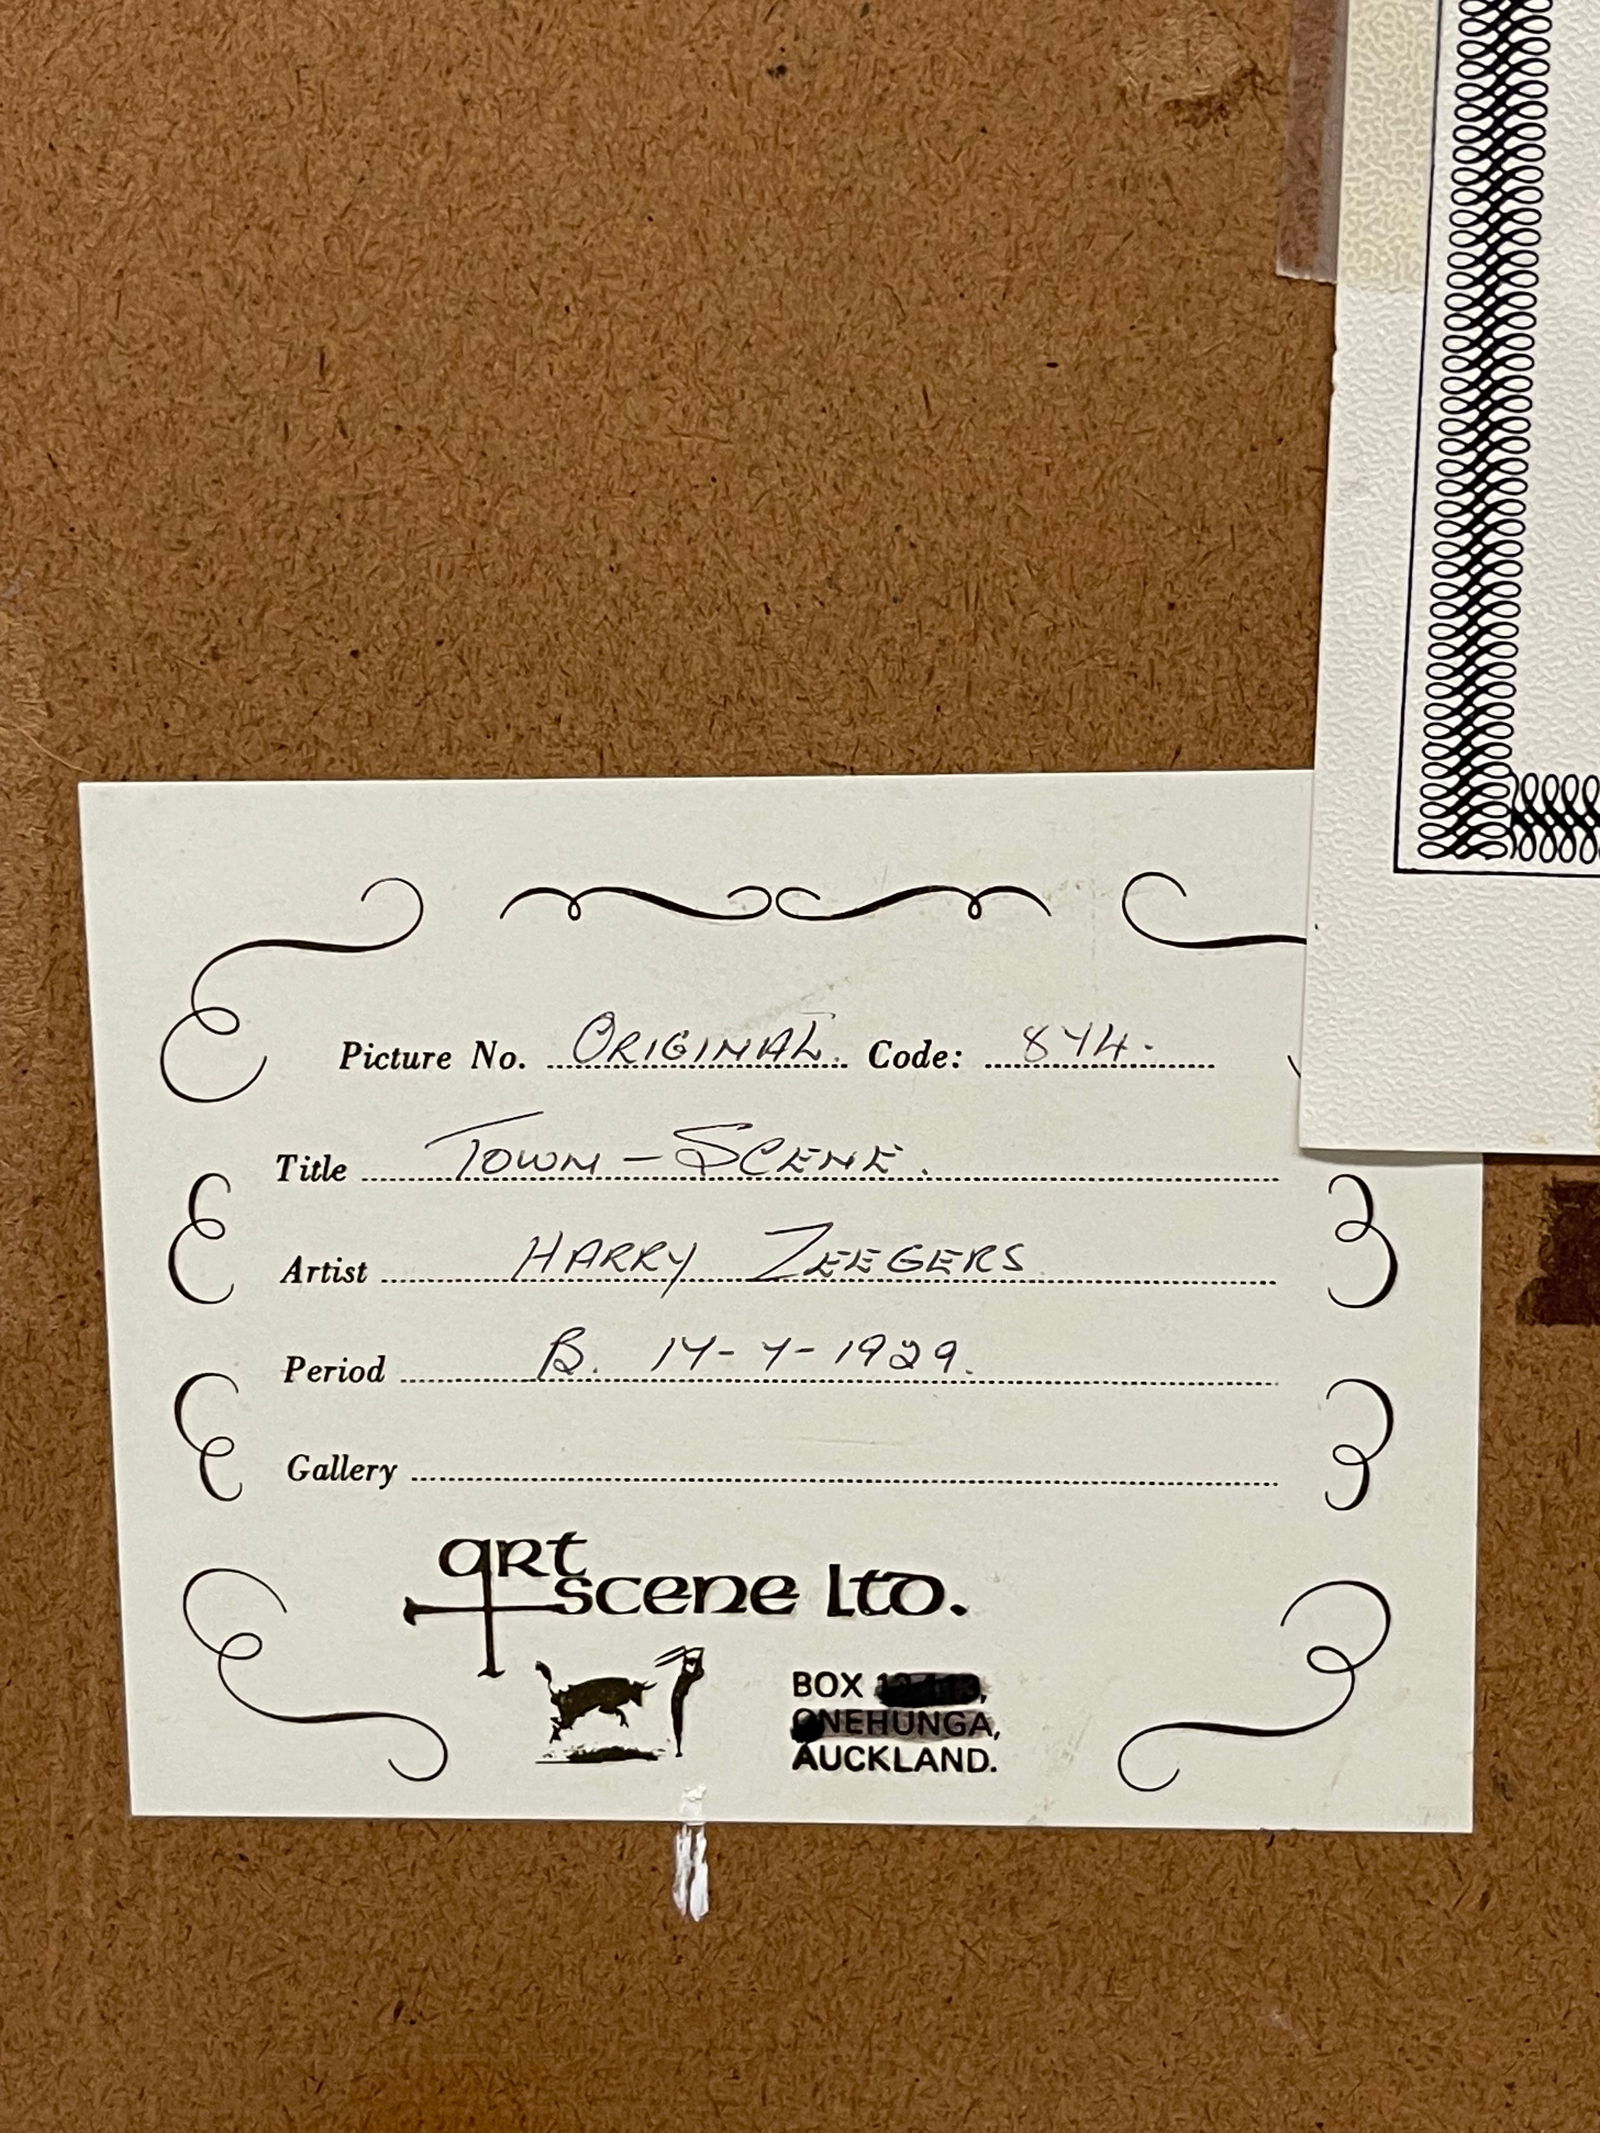 Picture No. ORIGINAL. Code: 874.
Title TOWN - SCENE.
Artist HARRY ZEEGERS
Period B. 17-7-1929.
Gallery
art
scene ltd.
BOX
ONEHUNGA,
AUCKLAND.